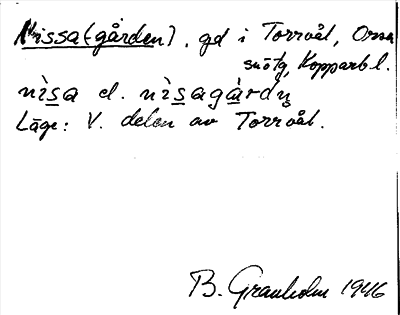 Nissa(-gården), gd i Torrvål, Orsa
snötg, Kopparb l.
nìsa el. nìsagàrdn̥
Läge: V. delen av Torrvål.
B. Granholm 1946